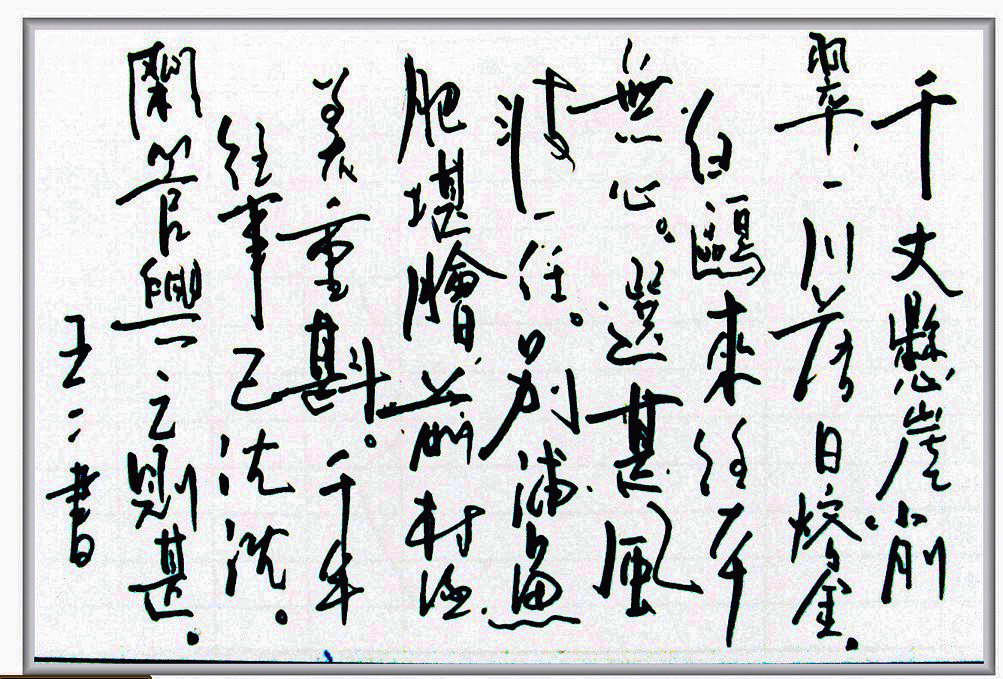 千丈懸崖削
翠一川落日熔金。
白鷗來往本
無心。選甚風
波一任。別浦魚
肥堪膾前村酒
美重斟。千年
往事已沈沈。
閑管興亡則甚。
王二書